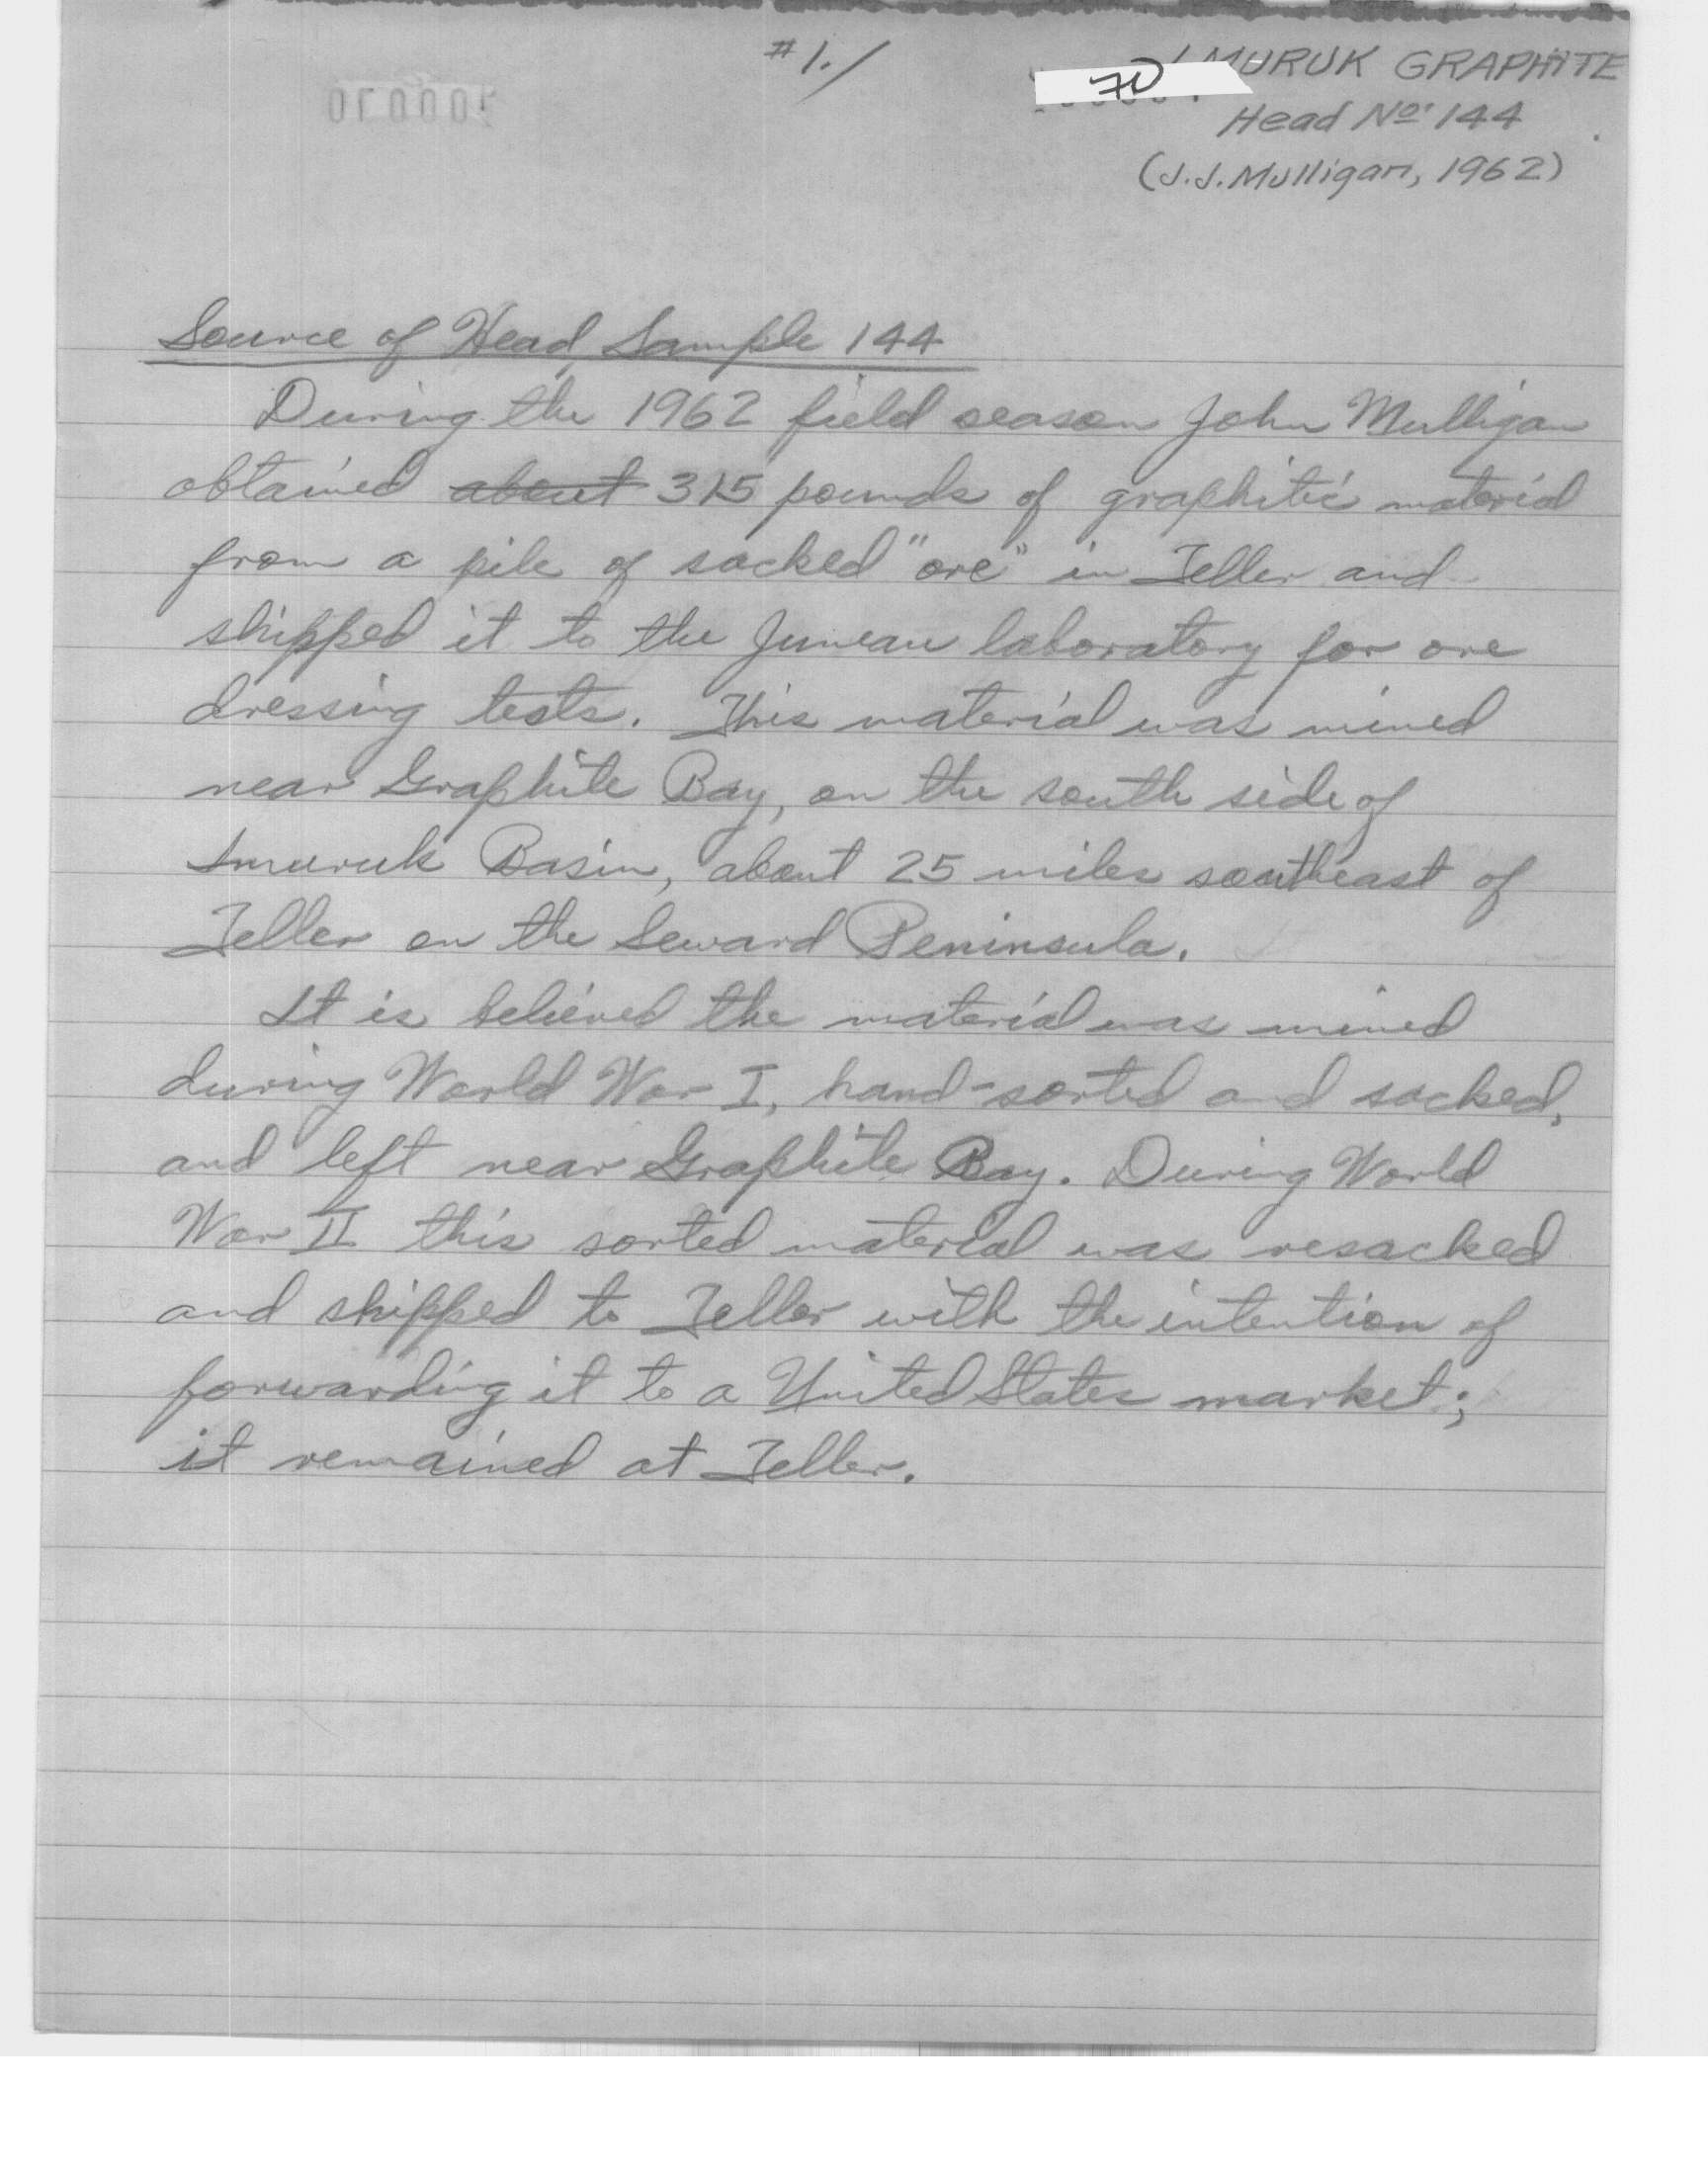 #1./
IMURUK GRAPHITE
70
Head No. 144
(J.J. Mulligan, 1962)
Source of Head Sample 144
During the 1962 field season John Mulligan
obtained about 315 pounds of graphitic material
from a pile of sacked "ore" in Teller and
shipped it to the Juneau laboratory for ore
dressing tests. This material was mined
near Graphite Bay, on the south side of
Imuruk Basin, about 25 miles southeast of
Teller on the Seward Peninsula.
It is believed the material was mined
during World War I, hand-sorted and sacked,
and left near Graphite Bay. During World
War II this sorted material was resacked
and shipped to Teller with the intention of
forwarding it to a United States market;
it remained at Teller.